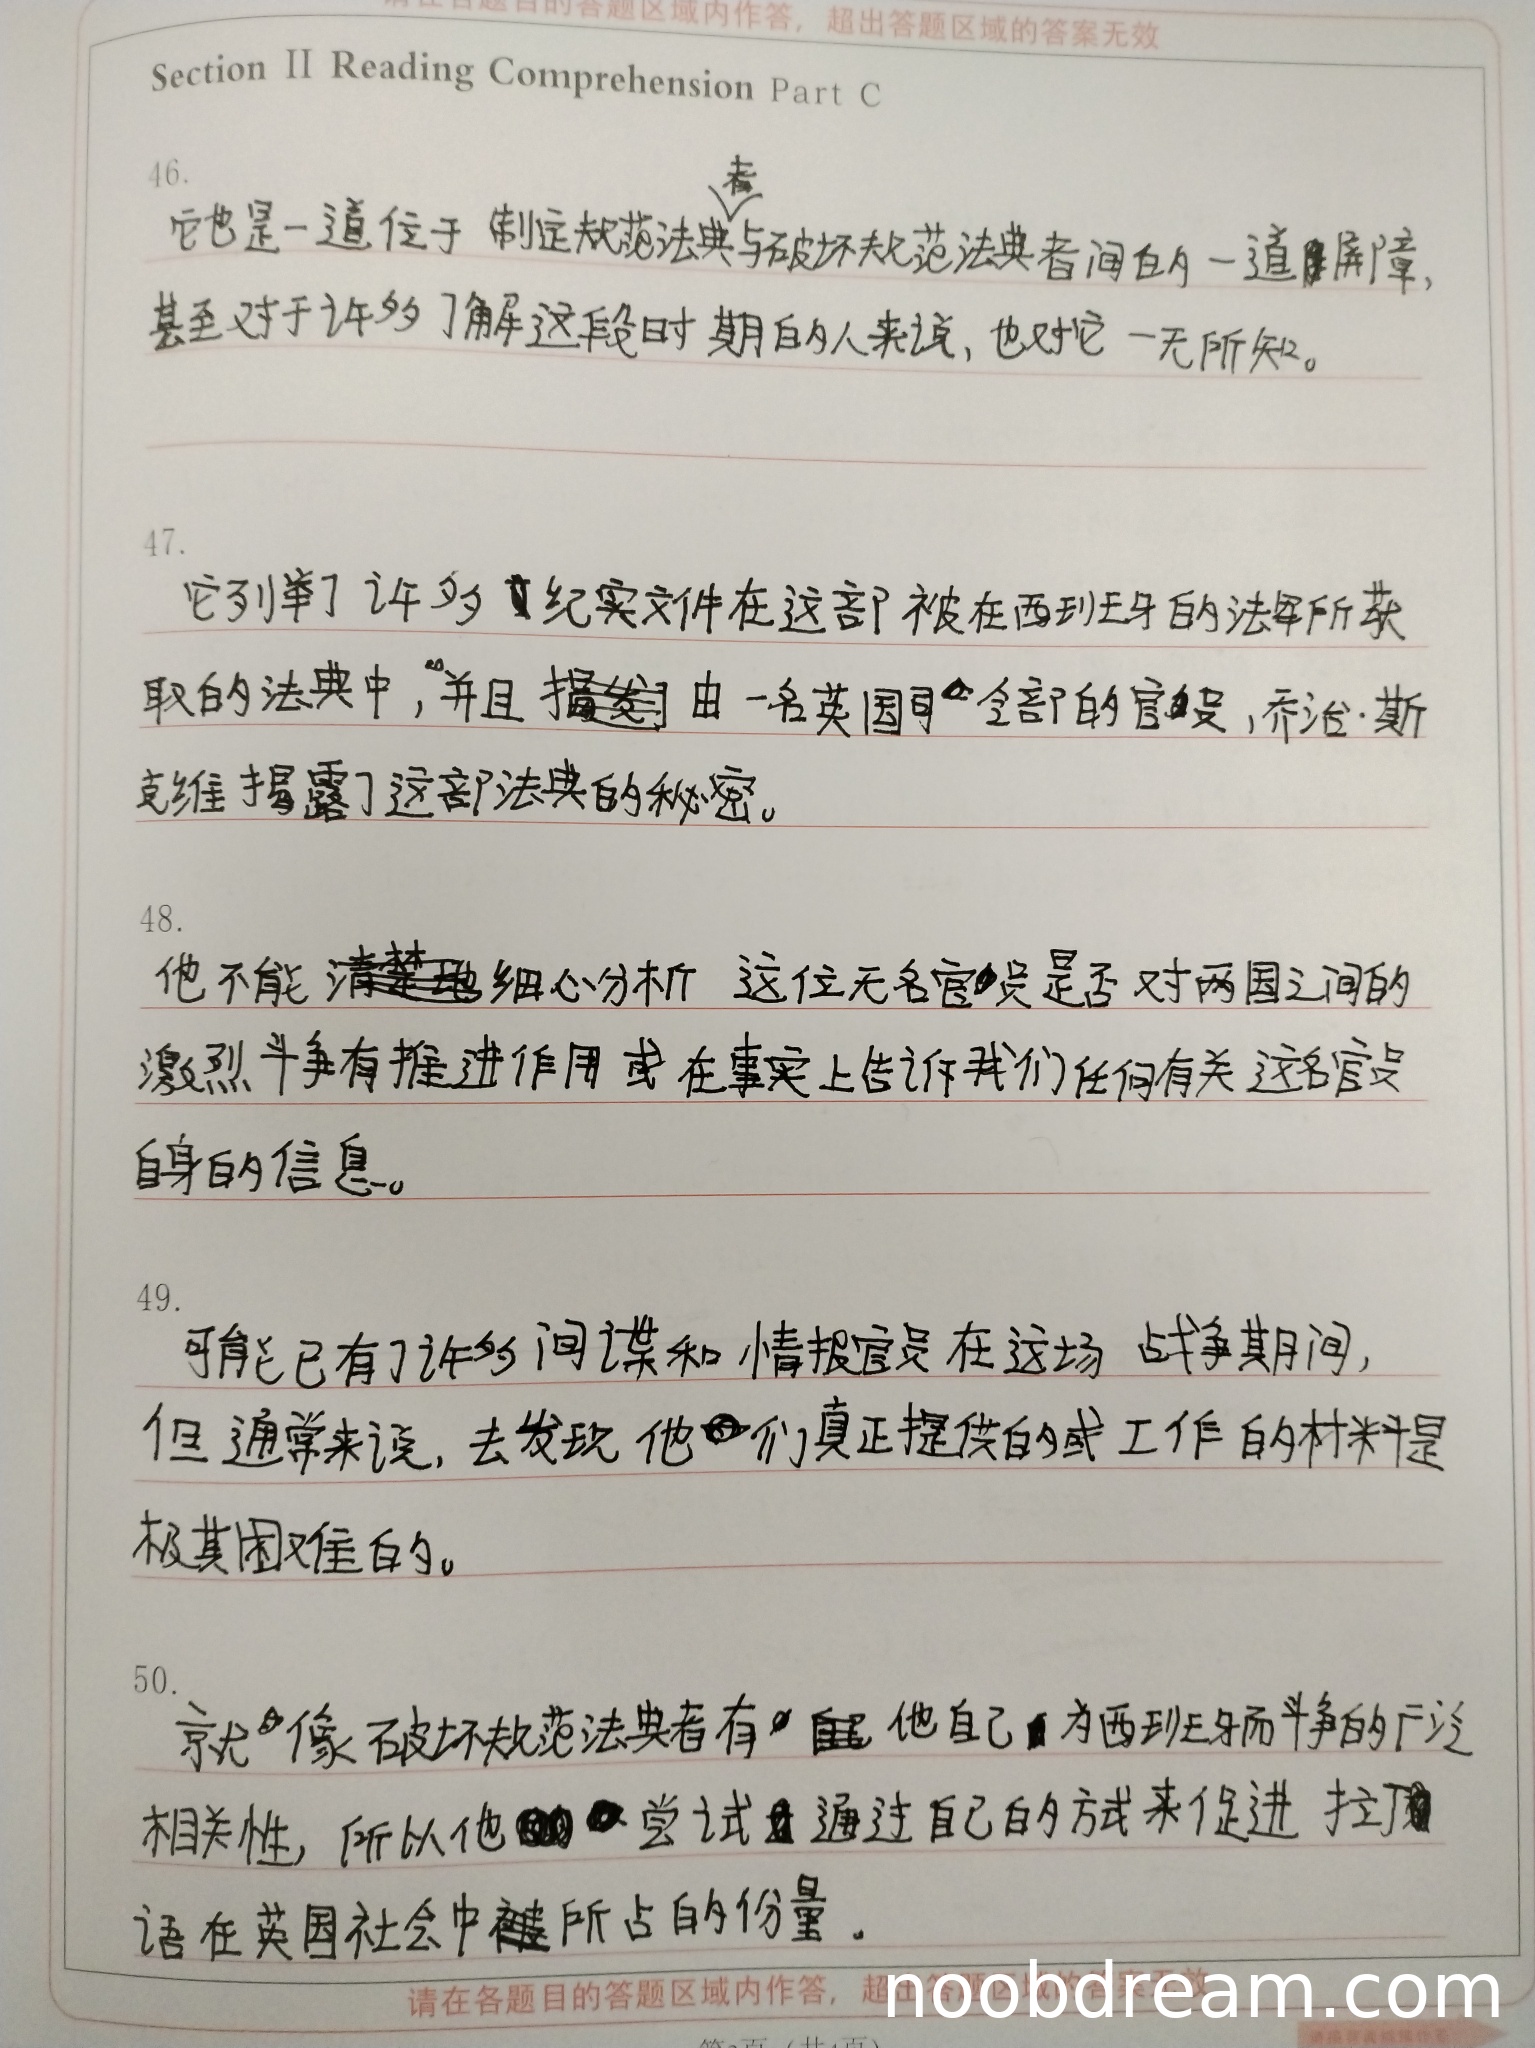 请在各题目的答题区域内作答，超出答题区域的答案无效
Section II Reading Comprehension Part C
46.
者
它也是一道位于制定规范法典与破坏规范法典者间的一道屏障，
甚至对于许多了解这段时期的人来说，也对它一无所知。
47.
它列举了许多纪实文件在这部被在西班牙的法军所获
取的法典中，并且由一名英国全部的官员，乔治·斯
克维揭露了这部法典的秘密。
48.
他不能细心分析 这位无名官员是否对两国之间的
激烈斗争有推进作用或在事实上告诉我们任何有关这名官员
自身的信息。
49.
可能已有了许多间谍和情报官员在这场战争期间，
但通常来说，去发现他们真正提供的或工作的材料是
极其困难的。
50.
就像破坏规范法典者有他自己为西班牙而斗争的广泛
相关性，所以他尝试通过自己的方式来促进拉丁
语在英国社会中所占的份量.
请在各题目的答题区域内作答，超出答题区域的答案无效
noobdream.com